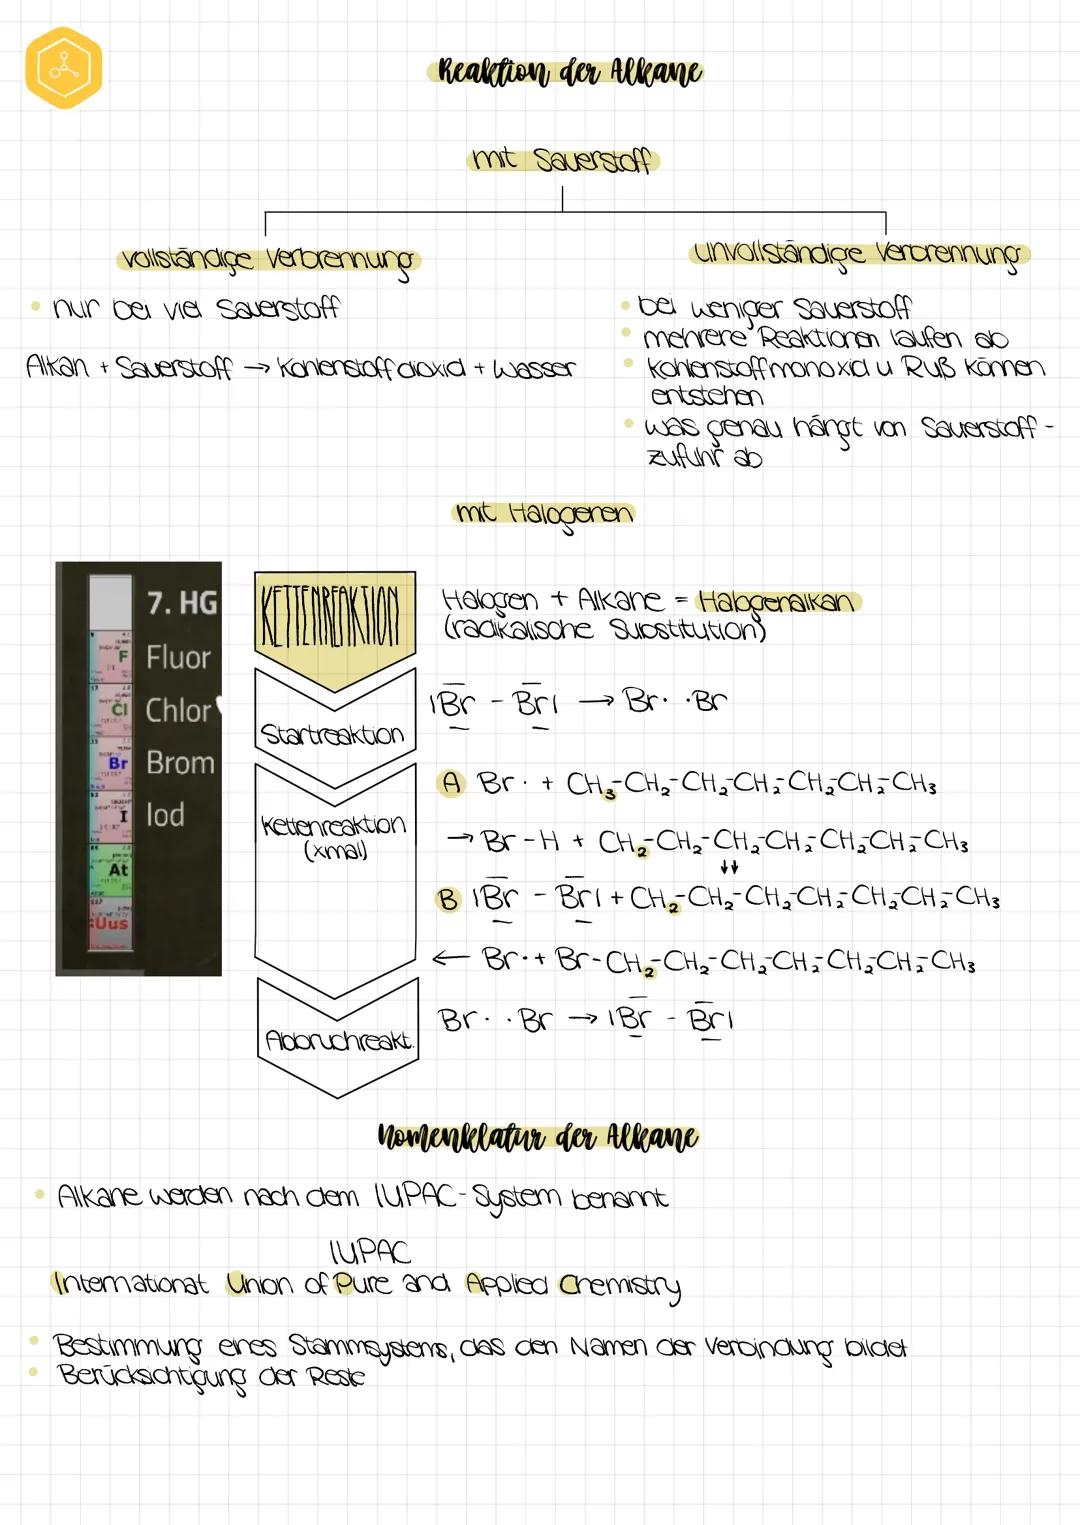 Reaktion der Alkane
mit Sauerstoff
vollständige Verbrennung
• nur bei viel Sauerstoff
Alkan + Sauerstoff → Kohlenstoffdioxid + Wasser
unvollständige Verbrennung
• bei weniger Sauerstoff
• mehrere Reaktionen laufen ab
• Kohlenstoffmonoxid u Ruß können
entstehen
• was genau hängt von Sauerstoff-
zufuhr ab
mit Halogenen
7. HG
F Fluor
Cl Chlor
Br Brom
I Iod
At
Uus
KETTENREAKTION
Halogen + Alkane = Halogenalkan
(radikalische Substitution)
Startreaktion
|Br - Br| → Br· ·Br
Kettenreaktion
(xmal)
A Br· + CH₃-CH₂-CH₂-CH₂-CH₂-CH₂-CH₃
→ Br-H + CH₂-CH₂-CH₂-CH₂-CH₂-CH₂-CH₃
↓↓
B |Br - Br| + CH₂-CH₂-CH₂-CH₂-CH₂-CH₂-CH₃
← Br· + Br-CH₂-CH₂-CH₂-CH₂-CH₂-CH₂-CH₃
Abbruchreakt.
Br· ·Br → |Br - Br|
Nomenklatur der Alkane
• Alkane werden nach dem IUPAC-System benannt
IUPAC
Internationat Union of Pure and Applied Chemistry
• Bestimmung eines Stammsystems, das den Namen der Verbindung bildet
• Berücksichtigung der Reste